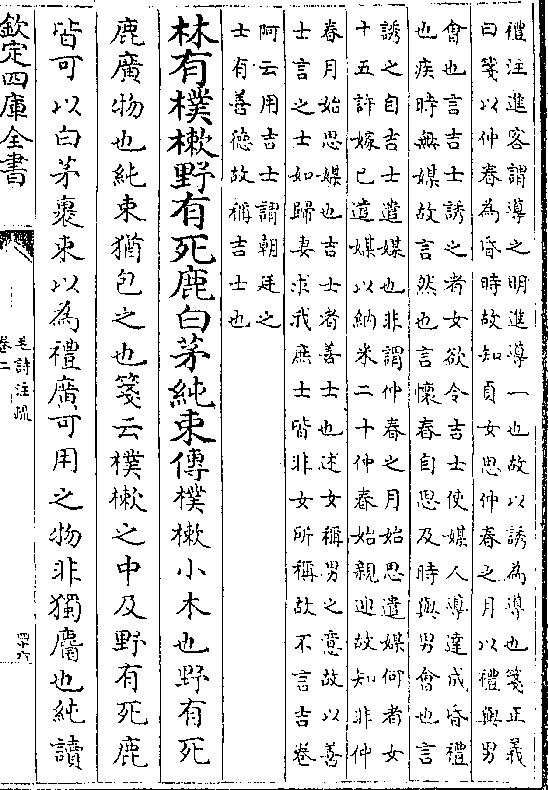 禮注進客謂導之明進導一也故以誘為導也箋正義
曰箋以仲春為昏時故知貞女思仲春之月以禮與男
會也言吉士誘之者女欲令吉士使媒人導達成昏禮
也疾時無媒故言然也言懷春自思及時與男會也言
誘之自吉士遣媒也非謂仲春之月始思遣媒何者女
十五許嫁已遣媒以納采二十仲春始親迎故知非仲
春月始思媒也吉士者善士也述女稱男之意故以善
士言之士如歸妻求我庶士皆非女所稱故不言吉卷
阿云用吉士謂朝廷之
士有善德故稱吉士也
林有樸樕野有死鹿白茅純束傳樸樕小木也野有死
鹿廣物也純束猶包之也箋云樸樕之中及野有死鹿
皆可以白茅裹束以為禮廣可用之物非獨麕也純讀
欽定四庫全書
毛詩注疏
卷二